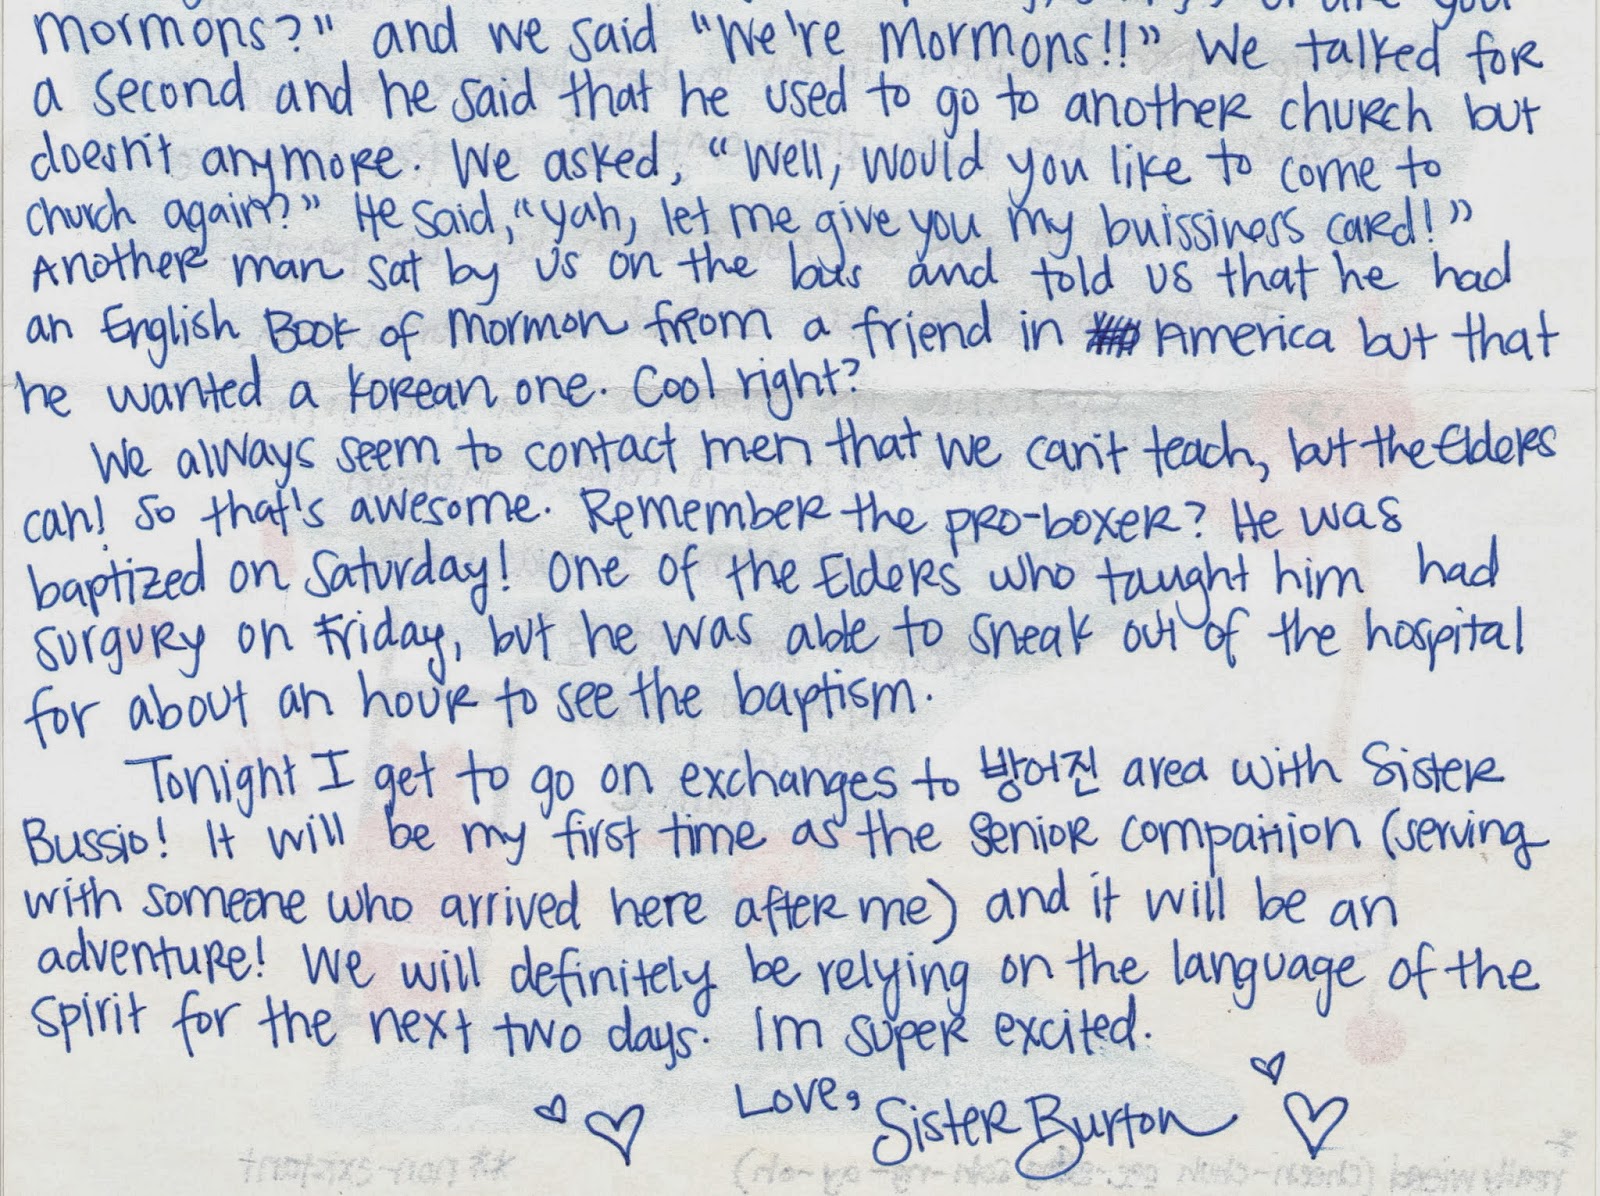 are you
Mormons?" and we said "We're Mormons!!" We talked for
a second and he said that he used to go to another church but
doesn't anymore. We asked, "Well, would you like to come to
church again?" He said, "yah, let me give you my buissiness card!"
Another man sat by us on the bus and told us that he had
an English Book of Mormon from a friend in America but that
he wanted a Korean one. Cool right?
We always seem to contact men that we can't teach, but the Elders
can! So that's awesome. Remember the pro-boxer? He was
baptized on Saturday! One of the Elders who taught him had
surgury on Friday, but he was able to sneak out of the hospital
for about an hour to see the baptism.
Tonight I get to go on exchanges to 방어진 area with Sister
Bussio! It will be my first time as the senior companion (serving
with someone who arrived here after me) and it will be an
adventure! We will definitely be relying on the language of the
spirit for the next two days. I'm super excited.
Love,
Sister Burton